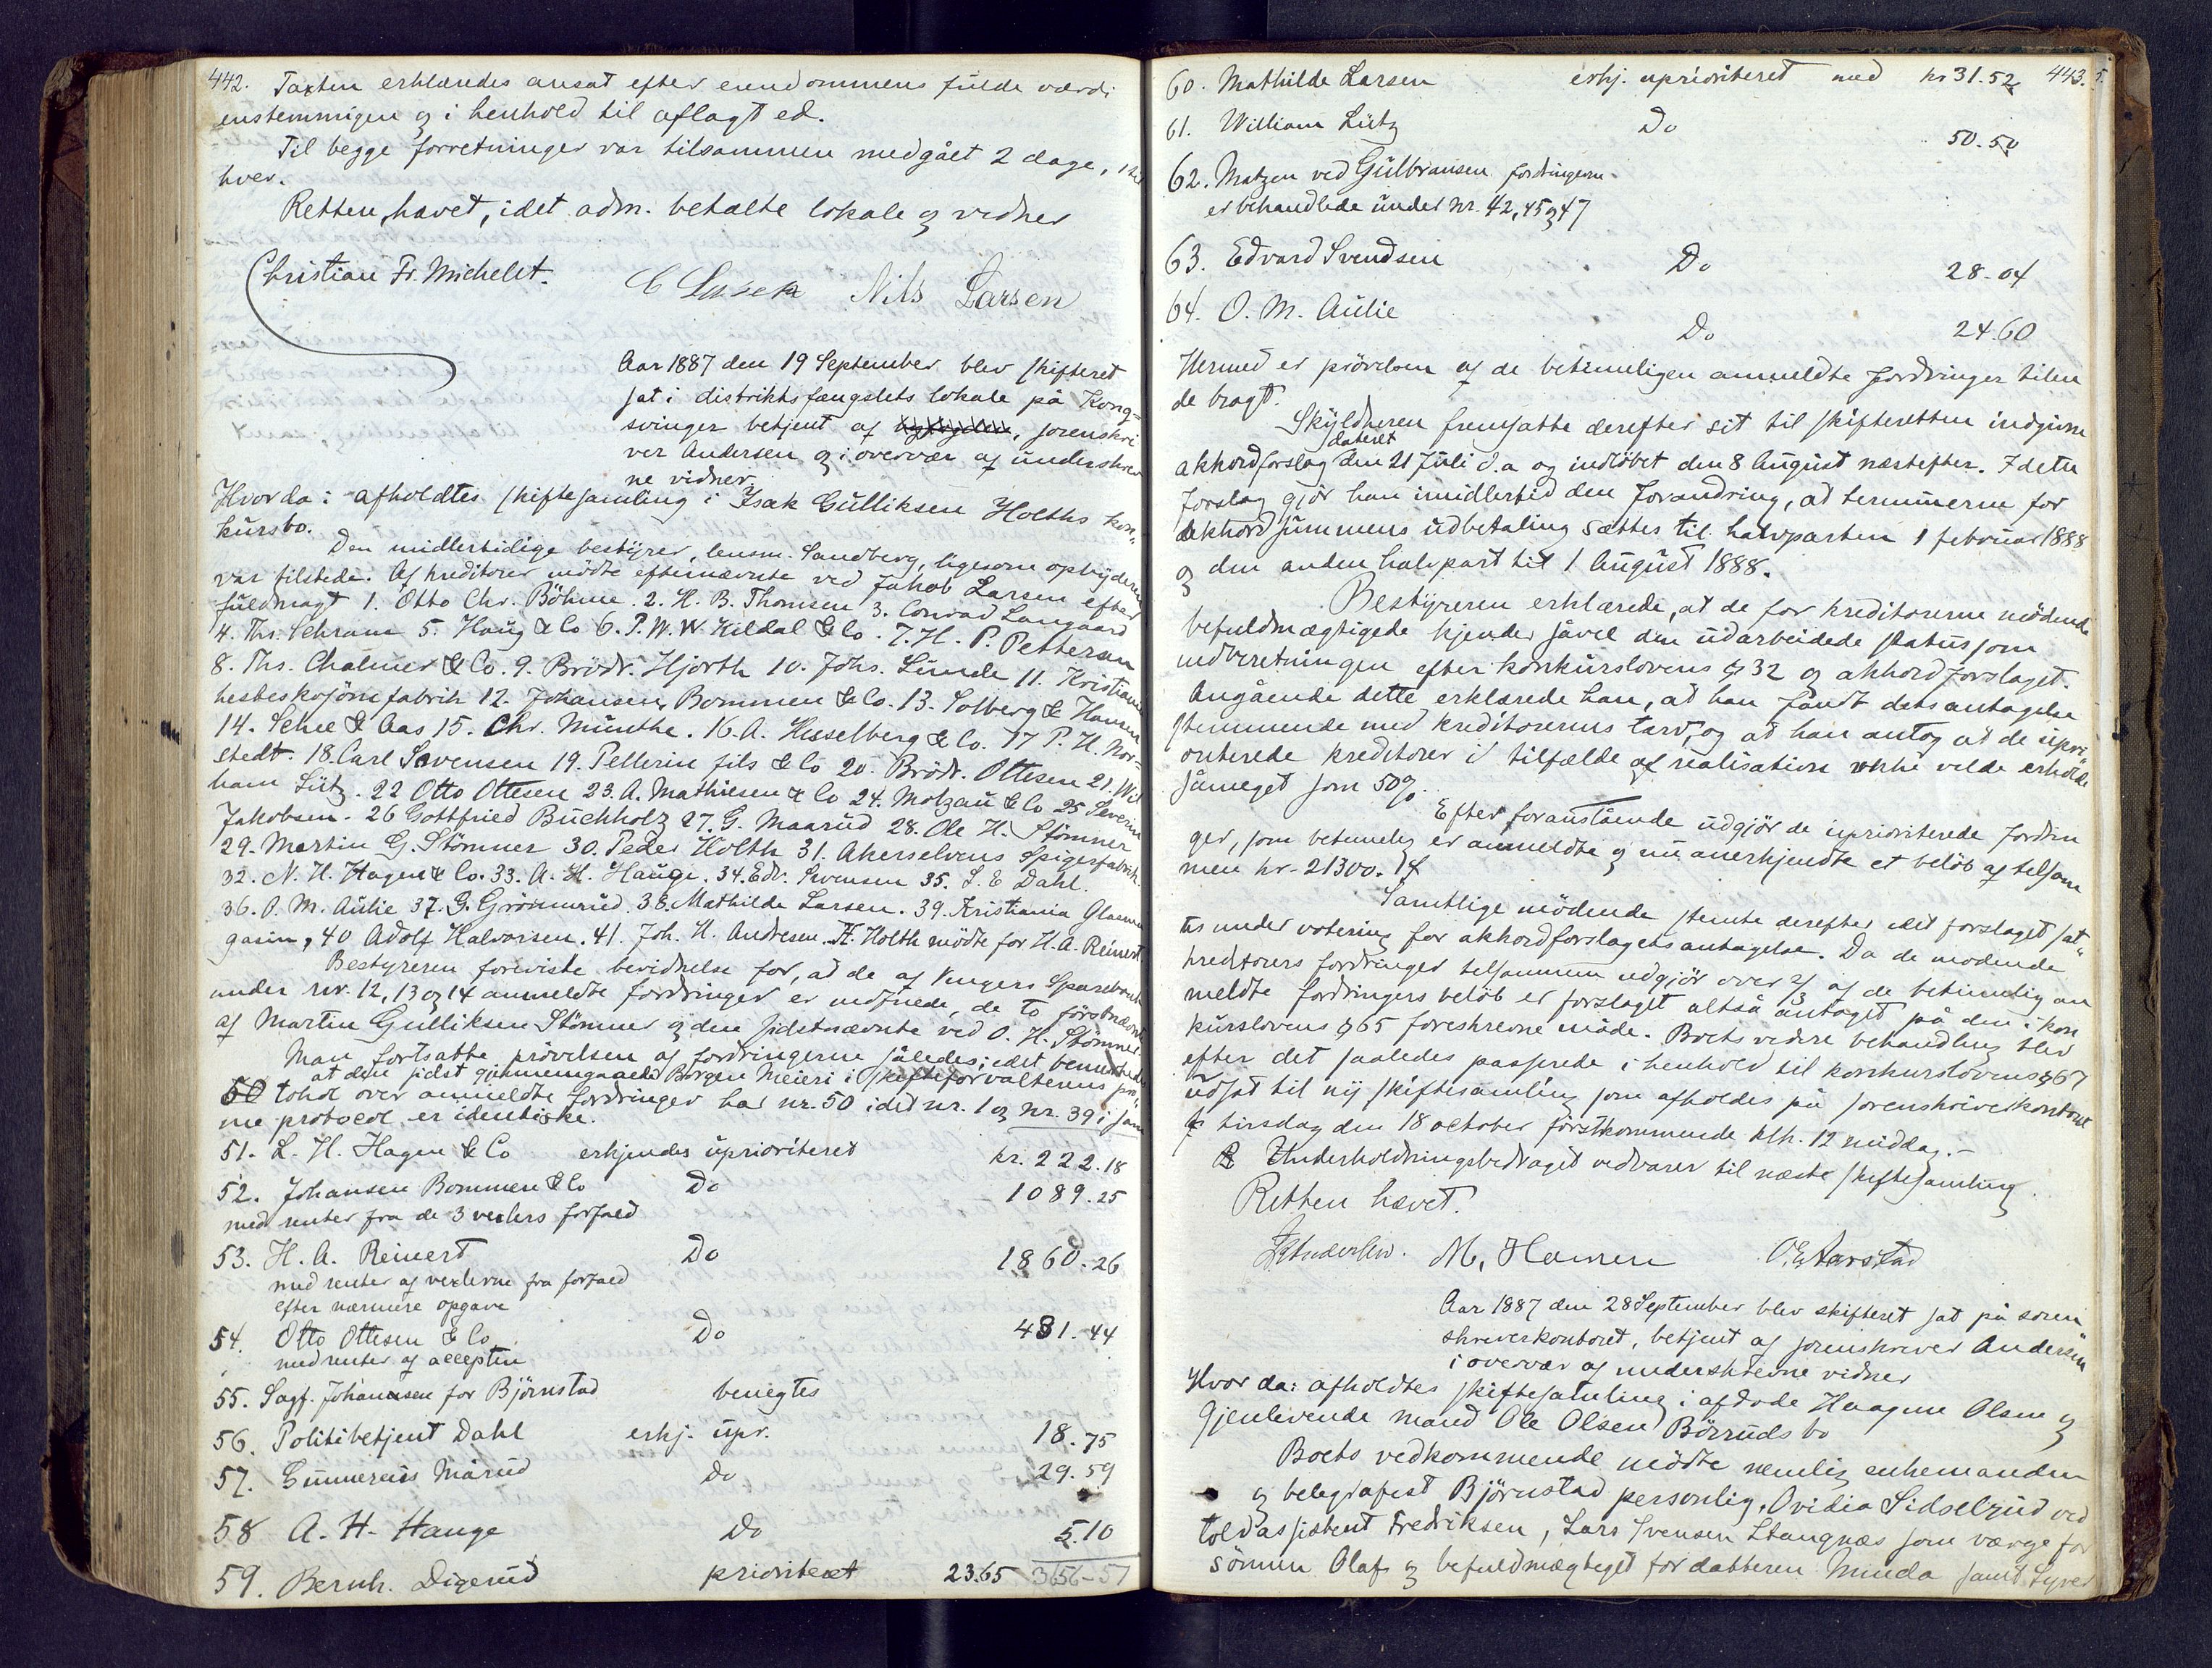 442. Taxten erklæredes ansat efter eiendommens fulde værdi
enstemmigen og i henhold til aflagt ed.
Til begge forretninger var tilsammen medgået 2 dage, 1 til
hver.
Retten hævet, idet adm. betalte lokale og vidner
Christian Fr. Michelet. C Larsen Nils Larsen
Aar 1887 den 19 September blev skifteret
sat i distriktsfængslets lokale på Kong-
svinger betjent af sorenskri
ver Andersen og i overvær af underskrev
ne vidner
Hvor da: afholdtes skiftesamling i Isak Gulliksen Holths kon-
kursbo.
Den midlertidige bestyrer, lensm. Sandberg, ligesom opbyderen
var tilstede. Af kreditorer mødte efternævnte ved Jakob Larsen efter
fuldmagt 1. Otto Chr. Böhme. 2. H. B. Thomsen 3. Conrad Langaard
4. Th. Schram 5. Haug & Co 6. P. W. W. Kildal & Co. 7. H. P. Pettersen
8. Ths. Chalmer & Co. 9. Brödr. Hjorth 10. Johs. Lunde 11. Kristiania
hesteskosømfabrik 12. Johansen, Bommen & Co. 13. Solberg & Hansen
14. Schee & Aas 15. Chr. Munthe. 16. A. Hesselberg & Co. 17 P. H. Nor-
stedt. 18. Carl Sørensen 19. Pellerin fils & Co 20. Brödr. Ottesen 21. Wil
liam Lütz. 22 Otto Ottesen 23. A. Mathiesen & Co 24. Motzau & Co 25 Severin
Jakobsen. 26 Gottfried Buchholz 27. G. Maarud 28. Ole H. Stömner
29. Martin G. Stömner 30. Peder Holth 31. Akerselvens Spigerfabrik.
32. N. H. Hagen & Co. 33. A. H. Hauge. 34. Edv. Svensen 35. L. E Dahl.
36. O. M. Aulie 37. G. Grönnerud. 38. Mathilde Larsen. 39. Kristiania Glasma
gasin, 40 Adolf Halvorsen. 41. Joh. H. Andresen. H. Holth mödte for H. A. Reinert
Bestyreren foreviste bevidnelse for, at de af Vingers Sparebank
under nr. 12, 13 og 14 anmeldte fordringer er indfriede, de to förstnævnte
af Martin Gulliksen Stömner og den sidstnævnte ved O. H. Stömner.
Man fortsatte prövelsen af fordringerne således: idet bemærkedes
at den sidst gjennemgaaede Borgen Meieri i skifteforvalterens pro
50 tokol over anmeldte fordringer har nr. 50 idet nr. 1 og nr. 39 i sam
me protocol er identiske.
51. L. H. Hagen & Co erkjendes uprioriteret kr. 222.18
52. Johansen Bommen & Co Do 1089.25
med renter fra de 3 vexlers forfald
53. H. A. Reinert Do 1860.26
med renter af vexlerne fra forfald
efter nærmere opgave
54. Otto Ottesen & Co Do 431.44
med renter af accepten
55. Sagf. Johannsen for Björnstad benegtes
56. Politibetjent Dahl erkj. upr. 18.75
57. Gunnerius Mårud Do 29.59
58 A. H. Hauge Do 5.10
59. Bernh. Digerud prioriteret 23.65 3656-57
60. Mathilde Larsen erkj. uprioriteret med kr 31.52 443.
61. William Lütz Do 50.50
62. Matzen ved Gulbransen fordringerne
er behandlede under nr. 42, 45 og 47
63. Edvard Svendsen Do 28-04
64. O. M. Aulie Do 24.60
Hermed er prövelsen af de betimeligen anmeldte fordringer tilen
de bragt.
Skyldneren fremsatte derefter sit til skifteretten indgivne
dateret
akkordforslag den 21 Juli d.a og indløbet den 8 August næstefter. I dette
forslag gjör han imidlertid den forandring, at terminerne for
akkordsummens udbetaling sættes til halvparten 1 februar 1888
og den anden halvpart til 1 August 1888.
Bestyreren erklærede, at de for kreditorerne mödende
befuldmægtigede kjender såvel den udarbeidede status som
indberetningen efter konkurslovens § 32 og akkordforslaget.
Angående dette erklærede han, at han fandt dets antagelse
stemmende med kreditorernes tarv, og at han antog at de upri
oriterede kreditorer i tilfælde af realisation ikke vilde erholde
såmeget som 50%.
Efter foranstående udgjör de uprioriterede fordrin
ger, som betimelig er anmeldte og nu anerkjendte et belöb af tilsam
men kr. 21300.14
Samtlige mödende stemte derefter idet forslaget sat-
tes under votering for akkordforslagets antagelse. Da de mødende
kreditorers fordringer tilsammen udgjör over af de betimelig an
meldte fordringers belöb er forslaget altså antaget på den i kon
kurslovens § 65 foreskrevne måde. Boets videre behandling blev
efter det saaledes passerede i henhold til konkurslovens § 67
udsat til ny skiftesamling som afholdes på sorenskriverkontoret
tirsdag den 18 october förstkommende klk. 12 middag.-
Underholdningsbidraget vedvarer til næste skiftesamling.
Retten hævet.
Andersen. M. Hansen O. E. Aarstad
Aar 1887 den 28 September blev skifteret sat på soren
skriverkontoret, betjent af sorenskriver Andersen
i overvær af underskrevne vidner
Hvor da: afholdtes skiftesamling i afdøde Haagine Olsen og
gjenlevende mand Ole Olsen Börruds bo
Boets vedkommende mödte nemlig enkemanden
og telegrafist Björnstad personlig. Ovidia Sidselrud ved
toldassistent Fredriksen, Lars Svensen Stangnæs som værge for
sönnen Olaf og befuldmægtiget for datteren Minda samt Syver